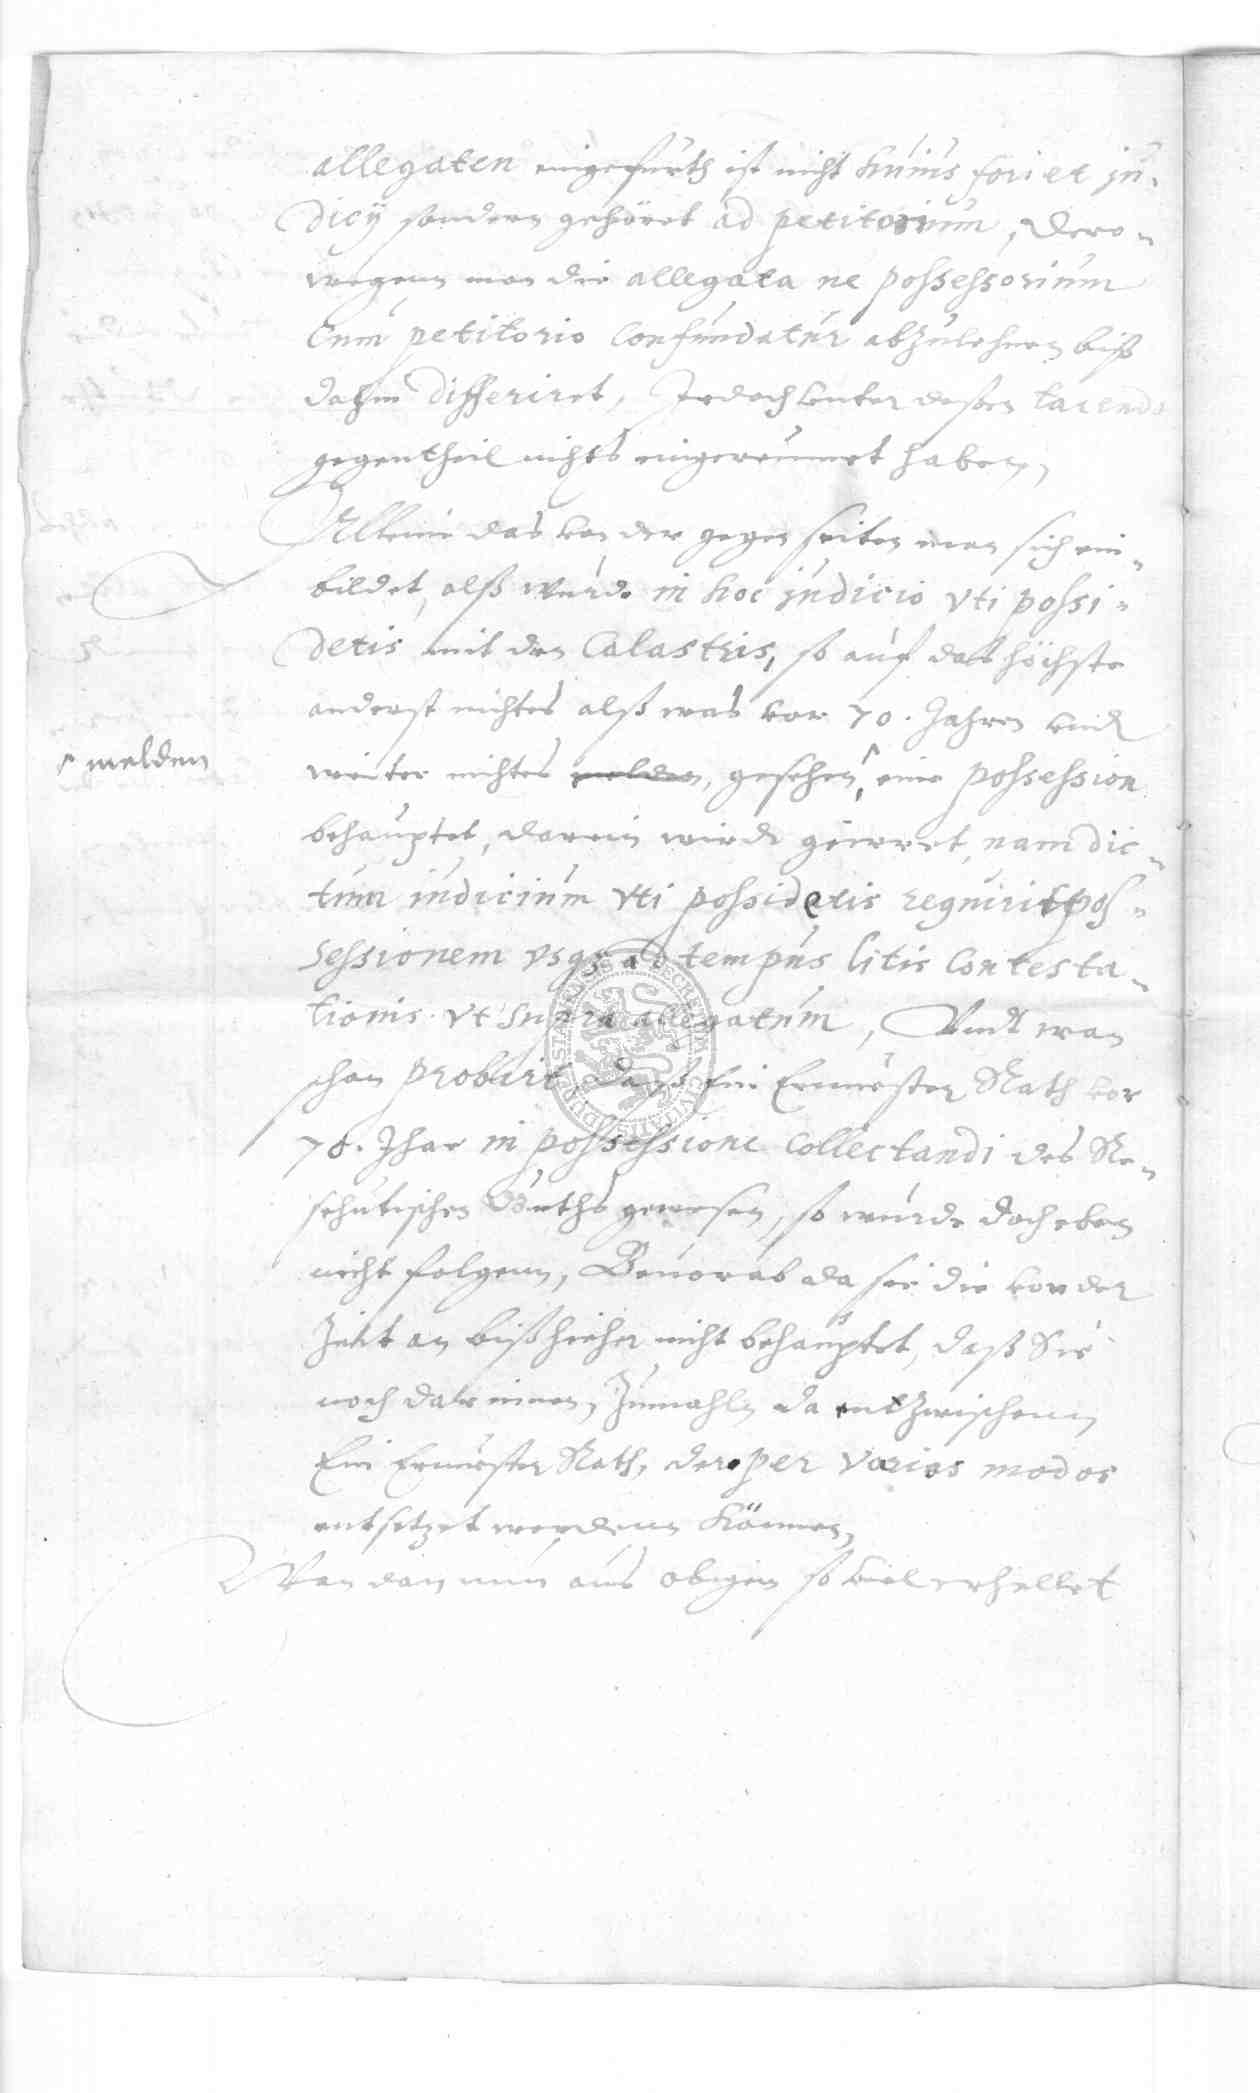 allegaten eingefürth ist nicht huius fori et ju-
dicÿ sondern gehöret ad petitorium, dero-
wegenn man die allegata ne possessorium
Cum petitorio Confundatur abzulehnen biß
dahin differiret, Jedoch vnter deßen tacendo
gegentheil nichts eingereumet haben,
Allein das von der gegen seiten man sich ein-
bildet, alß wurde in hoc judicio vti possi-
detis mit den Catastris, so auf das höchste
anderst nichtes alß was vor 70. Jahren vnd
^ melden
weiter nichtes melden, geschehen ^, eine possession
behauptet, darein wirdt geirret, nam dic-
tum iudicium vti possidetis requirit pos-
sessionem vsq ad tempus litis Contesta-
tionis vt supra allegatum, Vndt wan
schon probirt, das Ein Ernuester Rath vor
70. Jhar in possessione Collectandi des Re-
schutischen Guths gewesen, so wurde doch eben
nicht folgenn, Beuorab da sie die von der
Zeit an bißhieher nicht behauptet, daß Sie
noch darinnen, Zumahln da entzwischenn
Ein Ernuester Rath, der per varios modos
entsetzet werdenn können,
Wan dan nun aus obigen so viel erhellet